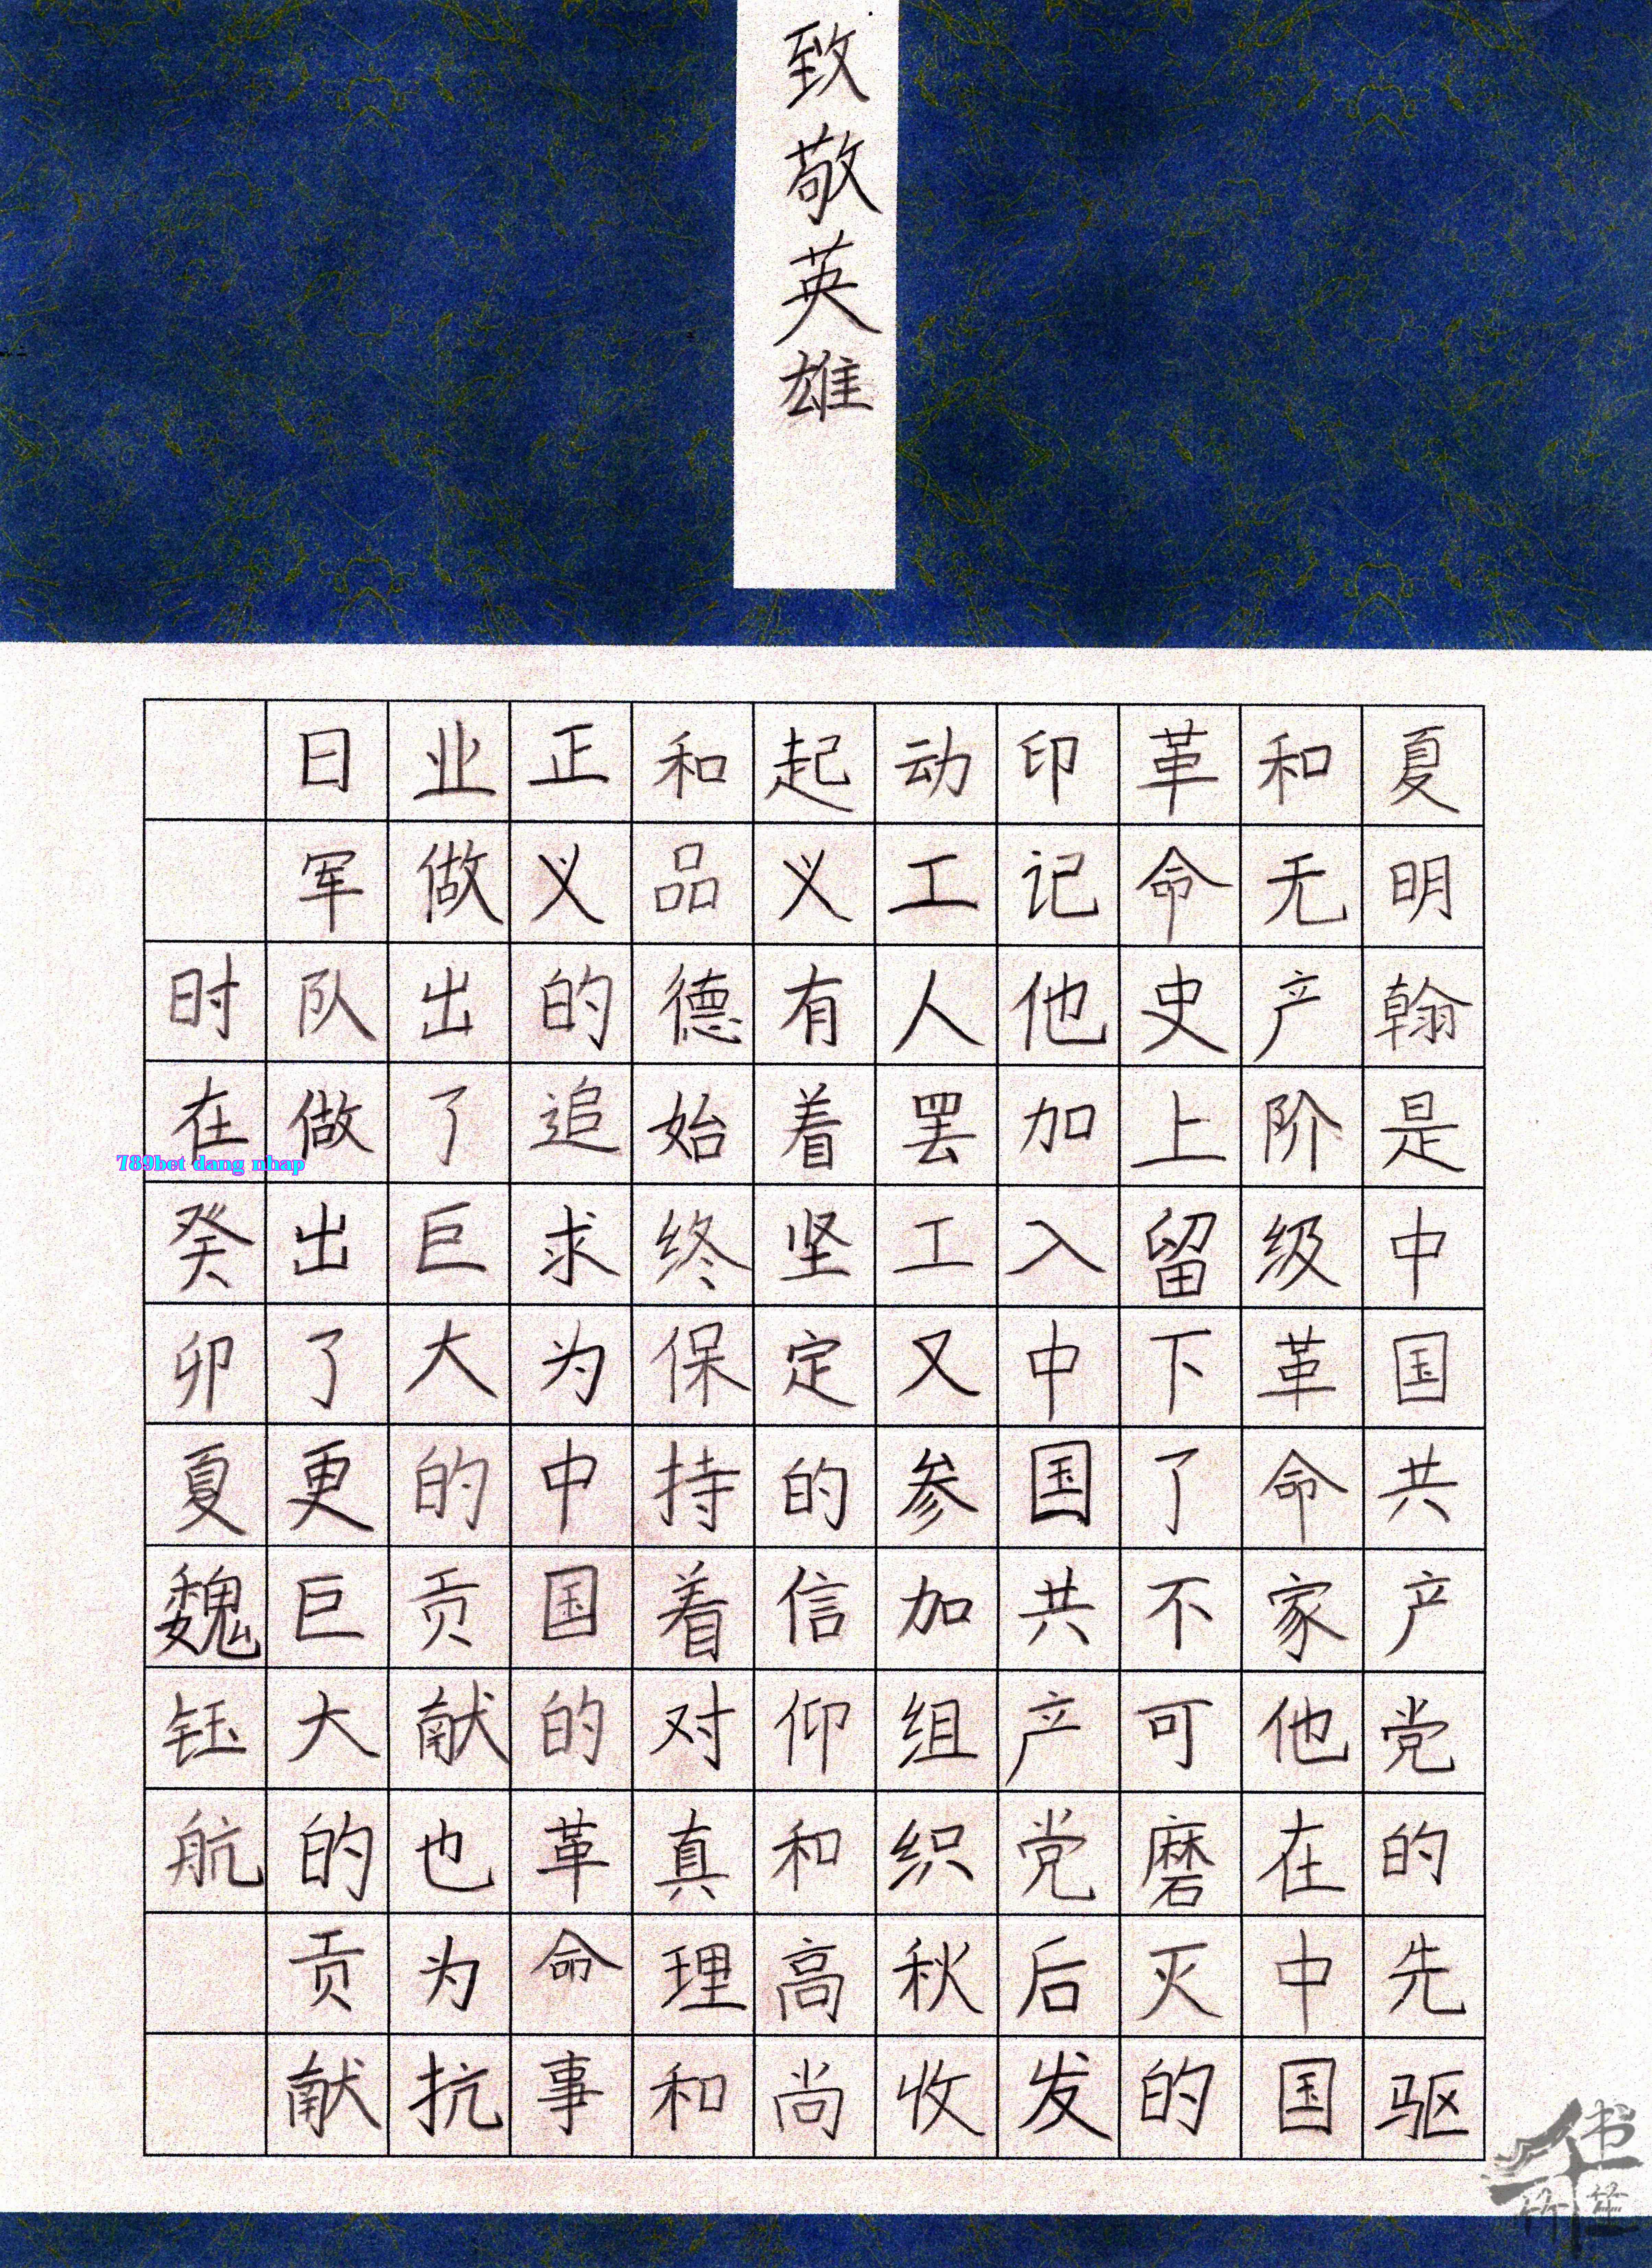 致敬英雄
夏明翰是中国共产党的先驱
和无产阶级革命家他在中国
革命史上留下了不可磨灭的
印记他加入中国共产党后发
动工人罢工又参加组织秋收
起义有着坚定的信仰和高尚
和品德始终保持着对真理和
正义的追求为中国的革命事
业做出了巨大的贡献也为抗
日军队做出了更巨大的贡献
时在癸卯夏魏钰航
789bet dang nhap